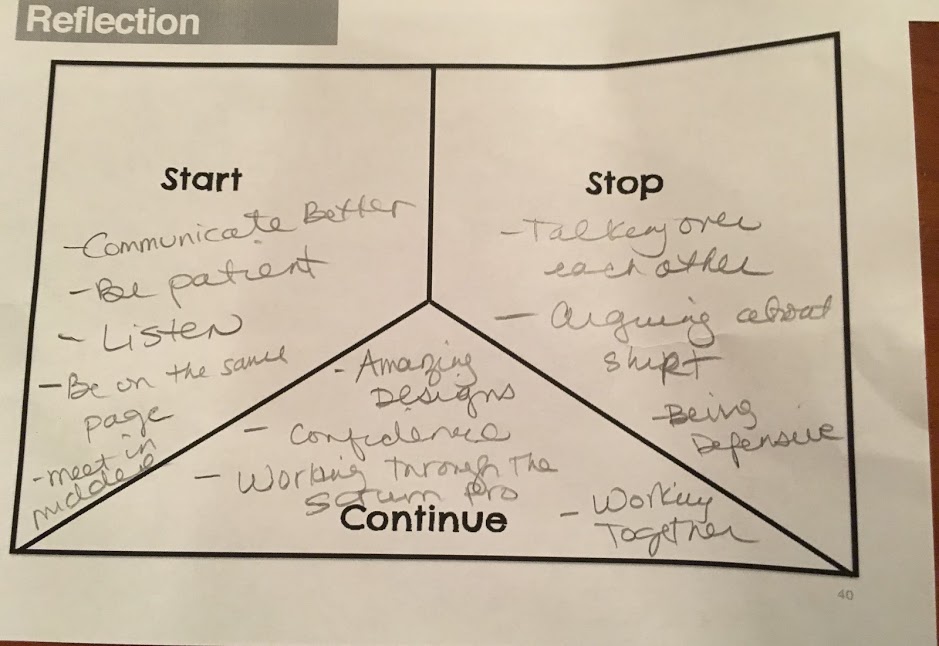 Reflection
Start
-Communicate Better
-Be patient
- Listen
-Be on the same
page
-meet in
middle
Stop
-Talking over
each other
- arguing about
-Being
Defensive
- Amazing
Designs
- Confidence
- Working through the
Scrum pro
Continue
- Working
Together
40